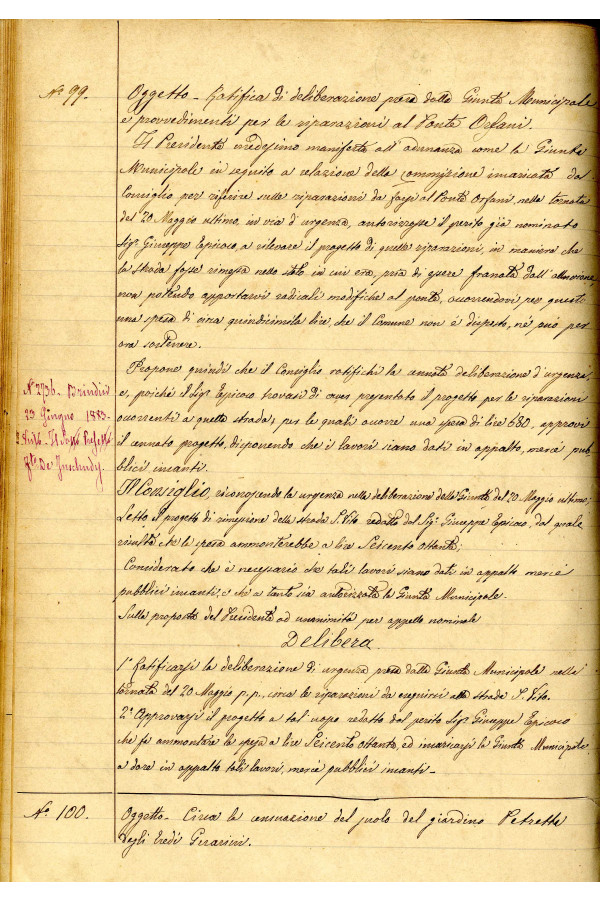 N.° 99.
Oggetto - Ratifica di deliberazione presa dalla Giunta Municipale
e provvedimenti per le riparazioni al Ponte Orfani.
Il Presidente medesimo manifesta all'adunanza come la Giunta
Municipale in seguito a relazione della commissione incaricata dal
Consiglio per riferire sulle riparazioni da farsi al Ponte Orfani, nella tornata
del 20 Maggio ultimo, in via d'urgenza, autorizzasse il perito già nominato
Sig.r Giuseppe Epicoco, a rilevare il progetto di quelle riparazioni, in maniera che
la strada fosse rimessa nello stato in cui era, pria di essere franata dall'alluvione,
non potendo apportarvi radicali modifiche al ponte, occorrendovi per queste
una spesa di circa quindicimila lire, che il Comune non è disposto, nè può per
ora sostenere.
Propone quindi che il Consiglio ratifichi la cennata deliberazione d'urgenza,
e, poichè il Sig.r Epicoco trovasi di aver presentato il progetto per le riparazioni
occorrenti a quella strada, per le quali occorre una spesa di lire 680, approvi
il cennato progetto, disponendo che i lavori siano dati in appalto, mercè pub-
blici incanti.
N. 2736. Brindisi
29 Giugno 1885.
Visto - Il Sotto Prefetto
Il Consiglio, riconoscendo la urgenza nella deliberazione della Giunta del 20 Maggio ultimo;
Letto il progetto di rimessione della strada S. Vito redatto dal Sig.r Giuseppe Epicoco, dal quale
risulta che la spesa ammonterebbe a lire Seicento ottanta;
Considerato che è necessario che tali lavori siano dati in appalto mercè
pubblici incanti, e che a tanto sia autorizzata la Giunta Municipale.
Sulla proposta del Presidente ad unanimità per appello nominale
Delibera
1° Ratificarsi la deliberazione di urgenza presa dalla Giunta Municipale nella
tornata del 20 Maggio p.p., circa le riparazioni da eseguirsi alla strada S. Vito.
2° Approvarsi il progetto a tal uopo redatto dal perito Sig.r Giuseppe Epicoco
che fa ammontare la spesa a lire Seicento Ottanta, ed incaricarsi la Giunta Municipale
a dare in appalto tali lavori, mercè pubblici incanti -
N.° 100.
Oggetto - Circa la censuazione del suolo del giardino Petretta
degli Eredi